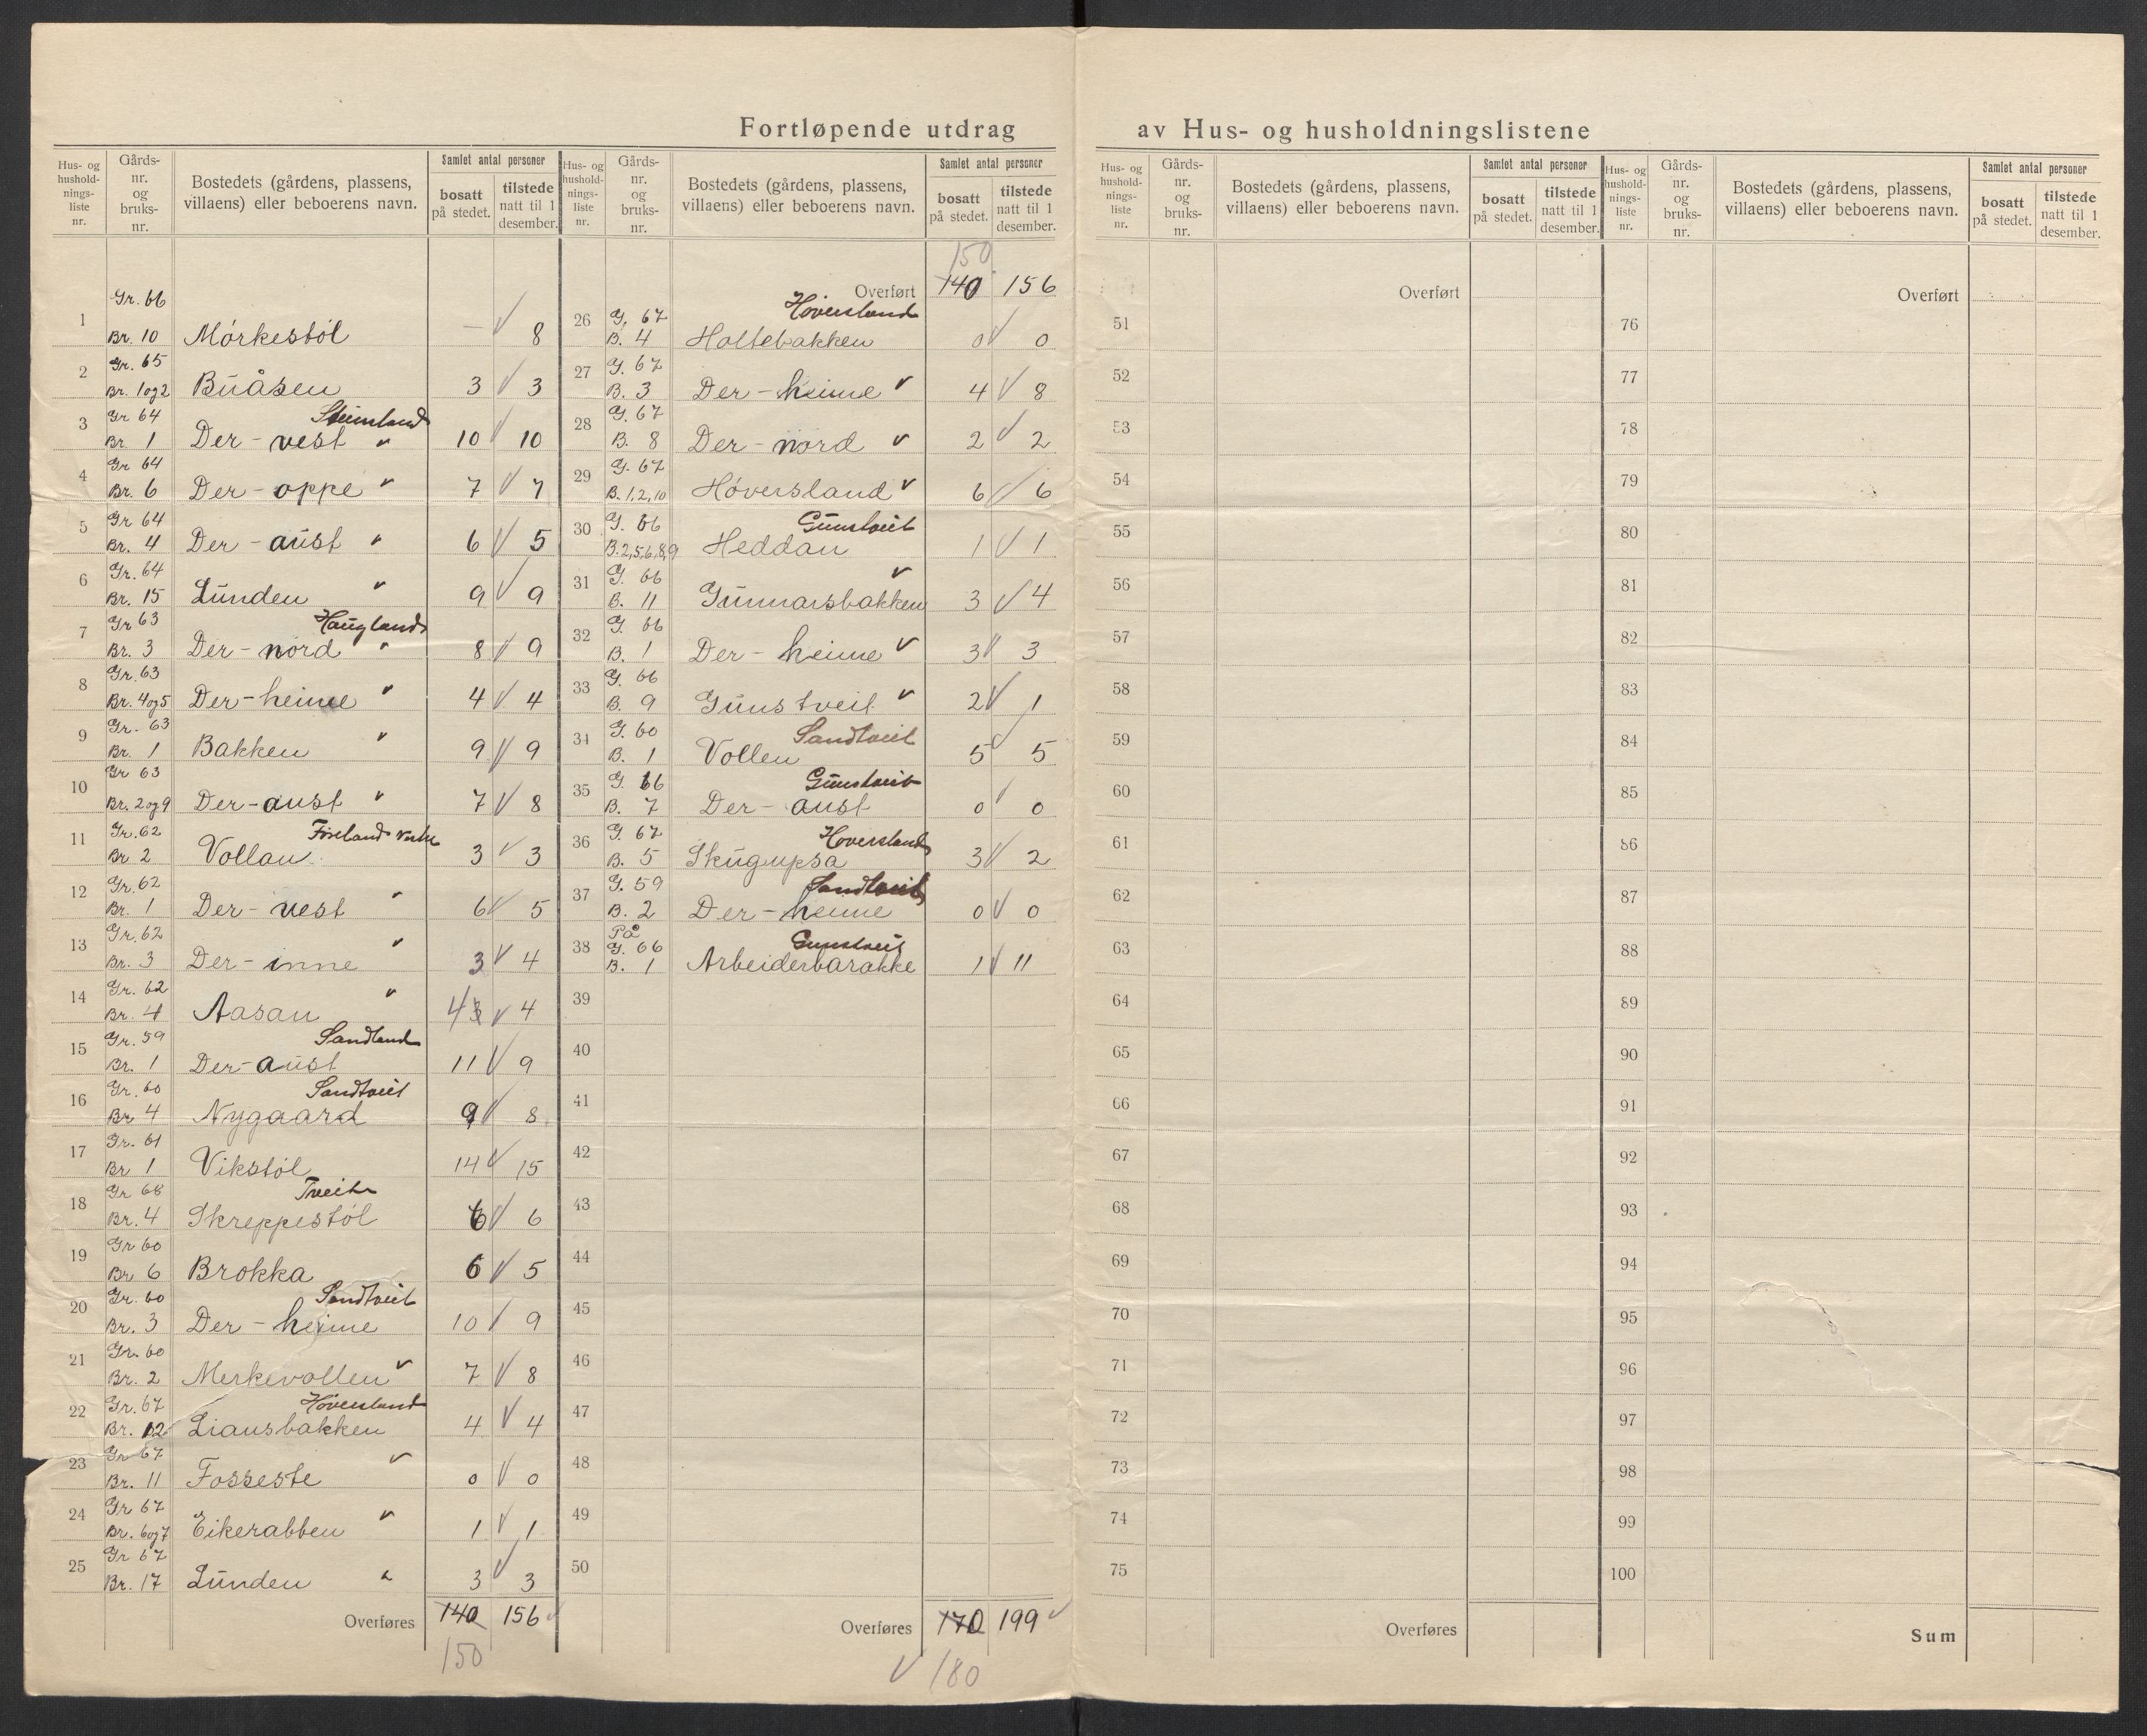 Fortløpende utdrag av Hus- og husholdningslistene
Hus- og hushold-nings-liste nr. | Gårds-nr. og bruks-nr. | Bostedets (gårdens, plassens, villaens) eller beboerens navn. | Samlet antal personer | bosatt på stedet. | tilstede natt til 1 desember.
1 Gr. 66 Br. 10 Mørkestøl – ✓ 8
2 Gr. 65 Br. 1og2 Buåsen 3 ✓ 3
3 Gr 64 Br. 1 Der-vest Steinsland " 10 ✓ 10
4 Gr 64 Br. 6 Der-oppe " 7 ✓ 7
5 Gr 64 Br. 4 Der-aust " 6 ✓ 5
6 Gr. 64 Br. 15 Lunden " 9 ✓ 9
7 Gr 63 Br. 3 Der-nord Haugland " 8 ✓ 9
8 Gr. 63 Br. 4og5 Der-heime " 4 ✓ 4
9 Gr. 63 Br. 1 Bakken " 9 ✓ 9
10 Gr 63 Br. 2og9 Der-aust " 7 ✓ 8
11 Gr. 62 Br 2 Vollan 3 ✓ 3
12 Gr. 62 Br. 1 Der-vest " 6 ✓ 5
13 Gr. 62 Br. 3 Der-inne " 3 ✓ 4
14 Gr. 62 Br. 4 Aasan " 4 3 ✓ 4
15 Gr. 59 Br. 1 Der-aust Sandland 11 ✓ 9
16 Gr. 60 Br 4 Nygaard Sandtveit 9 ✓ 8
17 Gr. 61 Br 1 Vikstøl 14 ✓ 15
18 Gr 68 Br. 4 Skreppestøl Tveit 6 ✓ 6
19 Gr 60 Br 6 Brokka 6 ✓ 5
20 Gr. 60 Br. 3 Der-heime Sandtveit 10 ✓ 9
21 Gr. 60 Br. 2 Merkevollen " 7 ✓ 8
22 Gr. 67 Br. 12 Liansbakken Høversland 4 ✓ 4
23 Gr 67 Br. 11 Fosseste " 0 ✓ 0
24 Gr 67 Br. 6og7 Eikerabben " 1 ✓ 1
25 Gr 67 Br. 17 Lunden " 3 ✓ 3
Overføres 140 156 ✓
150
Hus- og hushold-nings-liste nr. | Gårds-nr. og bruks-nr. | Bostedets (gårdens, plassens, villaens) eller beboerens navn. | Samlet antal personer | bosatt på stedet. | tilstede natt til 1 desember.
150
Overført 140 156
26 G. 67 B. 4 Holtebakken Høversland 0 ✓ 0
27 G. 67 B. 3 Der-heime " 4 ✓ 8
28 G. 67 B. 8 Der-nord " 2 ✓ 2
29 G. 67 B. 1,2,10 Høversland " 6 ✓ 6
30 G. 66 B. 2,5,6,8,9 Heddan Gunstveit 1 ✓ 1
31 G. 66 B. 11 Gunnarsbakken " 3 ✓ 4
32 G. 66 B. 1 Der-heime " 3 ✓ 3
33 G. 66 B. 9 Gunstveit " 2 ✓ 1
34 G. 60 B. 1 Vollen Sandtveit 5 ✓ 5
35 G. 66 B. 7 Der-aust Gunstveit 0 ✓ 0
36 G. 67 B. 5 Skugupsa Hoversland 3 ✓ 2
37 G. 59 B. 2 Der-heime Sandtveit 0 ✓ 0
38 På G. 66 B. 1 Arbeiderbarakke Gunstveit 1 ✓ 11
39
40
41
42
43
44
45
46
47
48
49
50
Overføres 170 199 ✓
✓ 180
Hus- og hushold-nings-liste nr. | Gårds-nr. og bruks-nr. | Bostedets (gårdens, plassens, villaens) eller beboerens navn. | Samlet antal personer | bosatt på stedet. | tilstede natt til 1 desember.
Overført
51
52
53
54
55
56
57
58
59
60
61
62
63
64
65
66
67
68
69
70
71
72
73
74
75
Overføres
Hus- og hushold-nings-liste nr. | Gårds-nr. og bruks-nr. | Bostedets (gårdens, plassens, villaens) eller beboerens navn. | Samlet antal personer | bosatt på stedet. | tilstede natt til 1 desember.
Overført
76
77
78
79
80
81
82
83
84
85
86
87
88
89
90
91
92
93
94
95
96
97
98
99
100
Sum